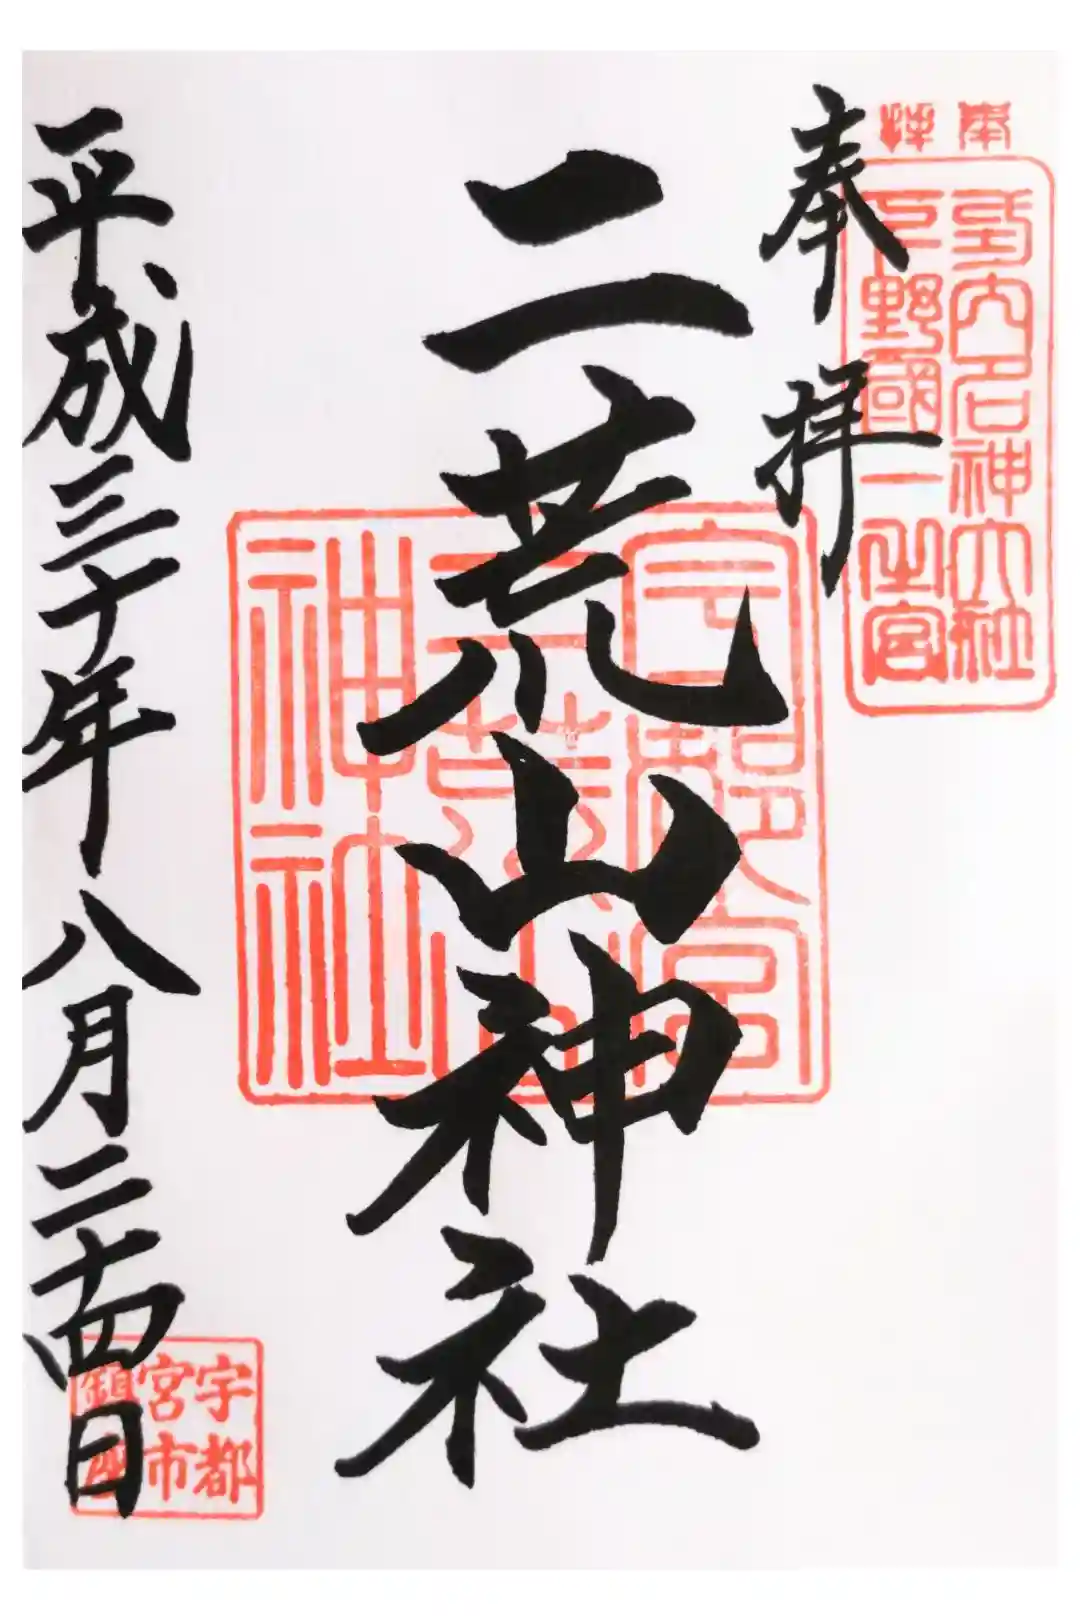 奉拝
延内名神大社
下野國一之宮
奉拝
二荒山神社
宇都宮
二荒山
神社
平成三十年八月二十四日
宇都
宮市
鎮座